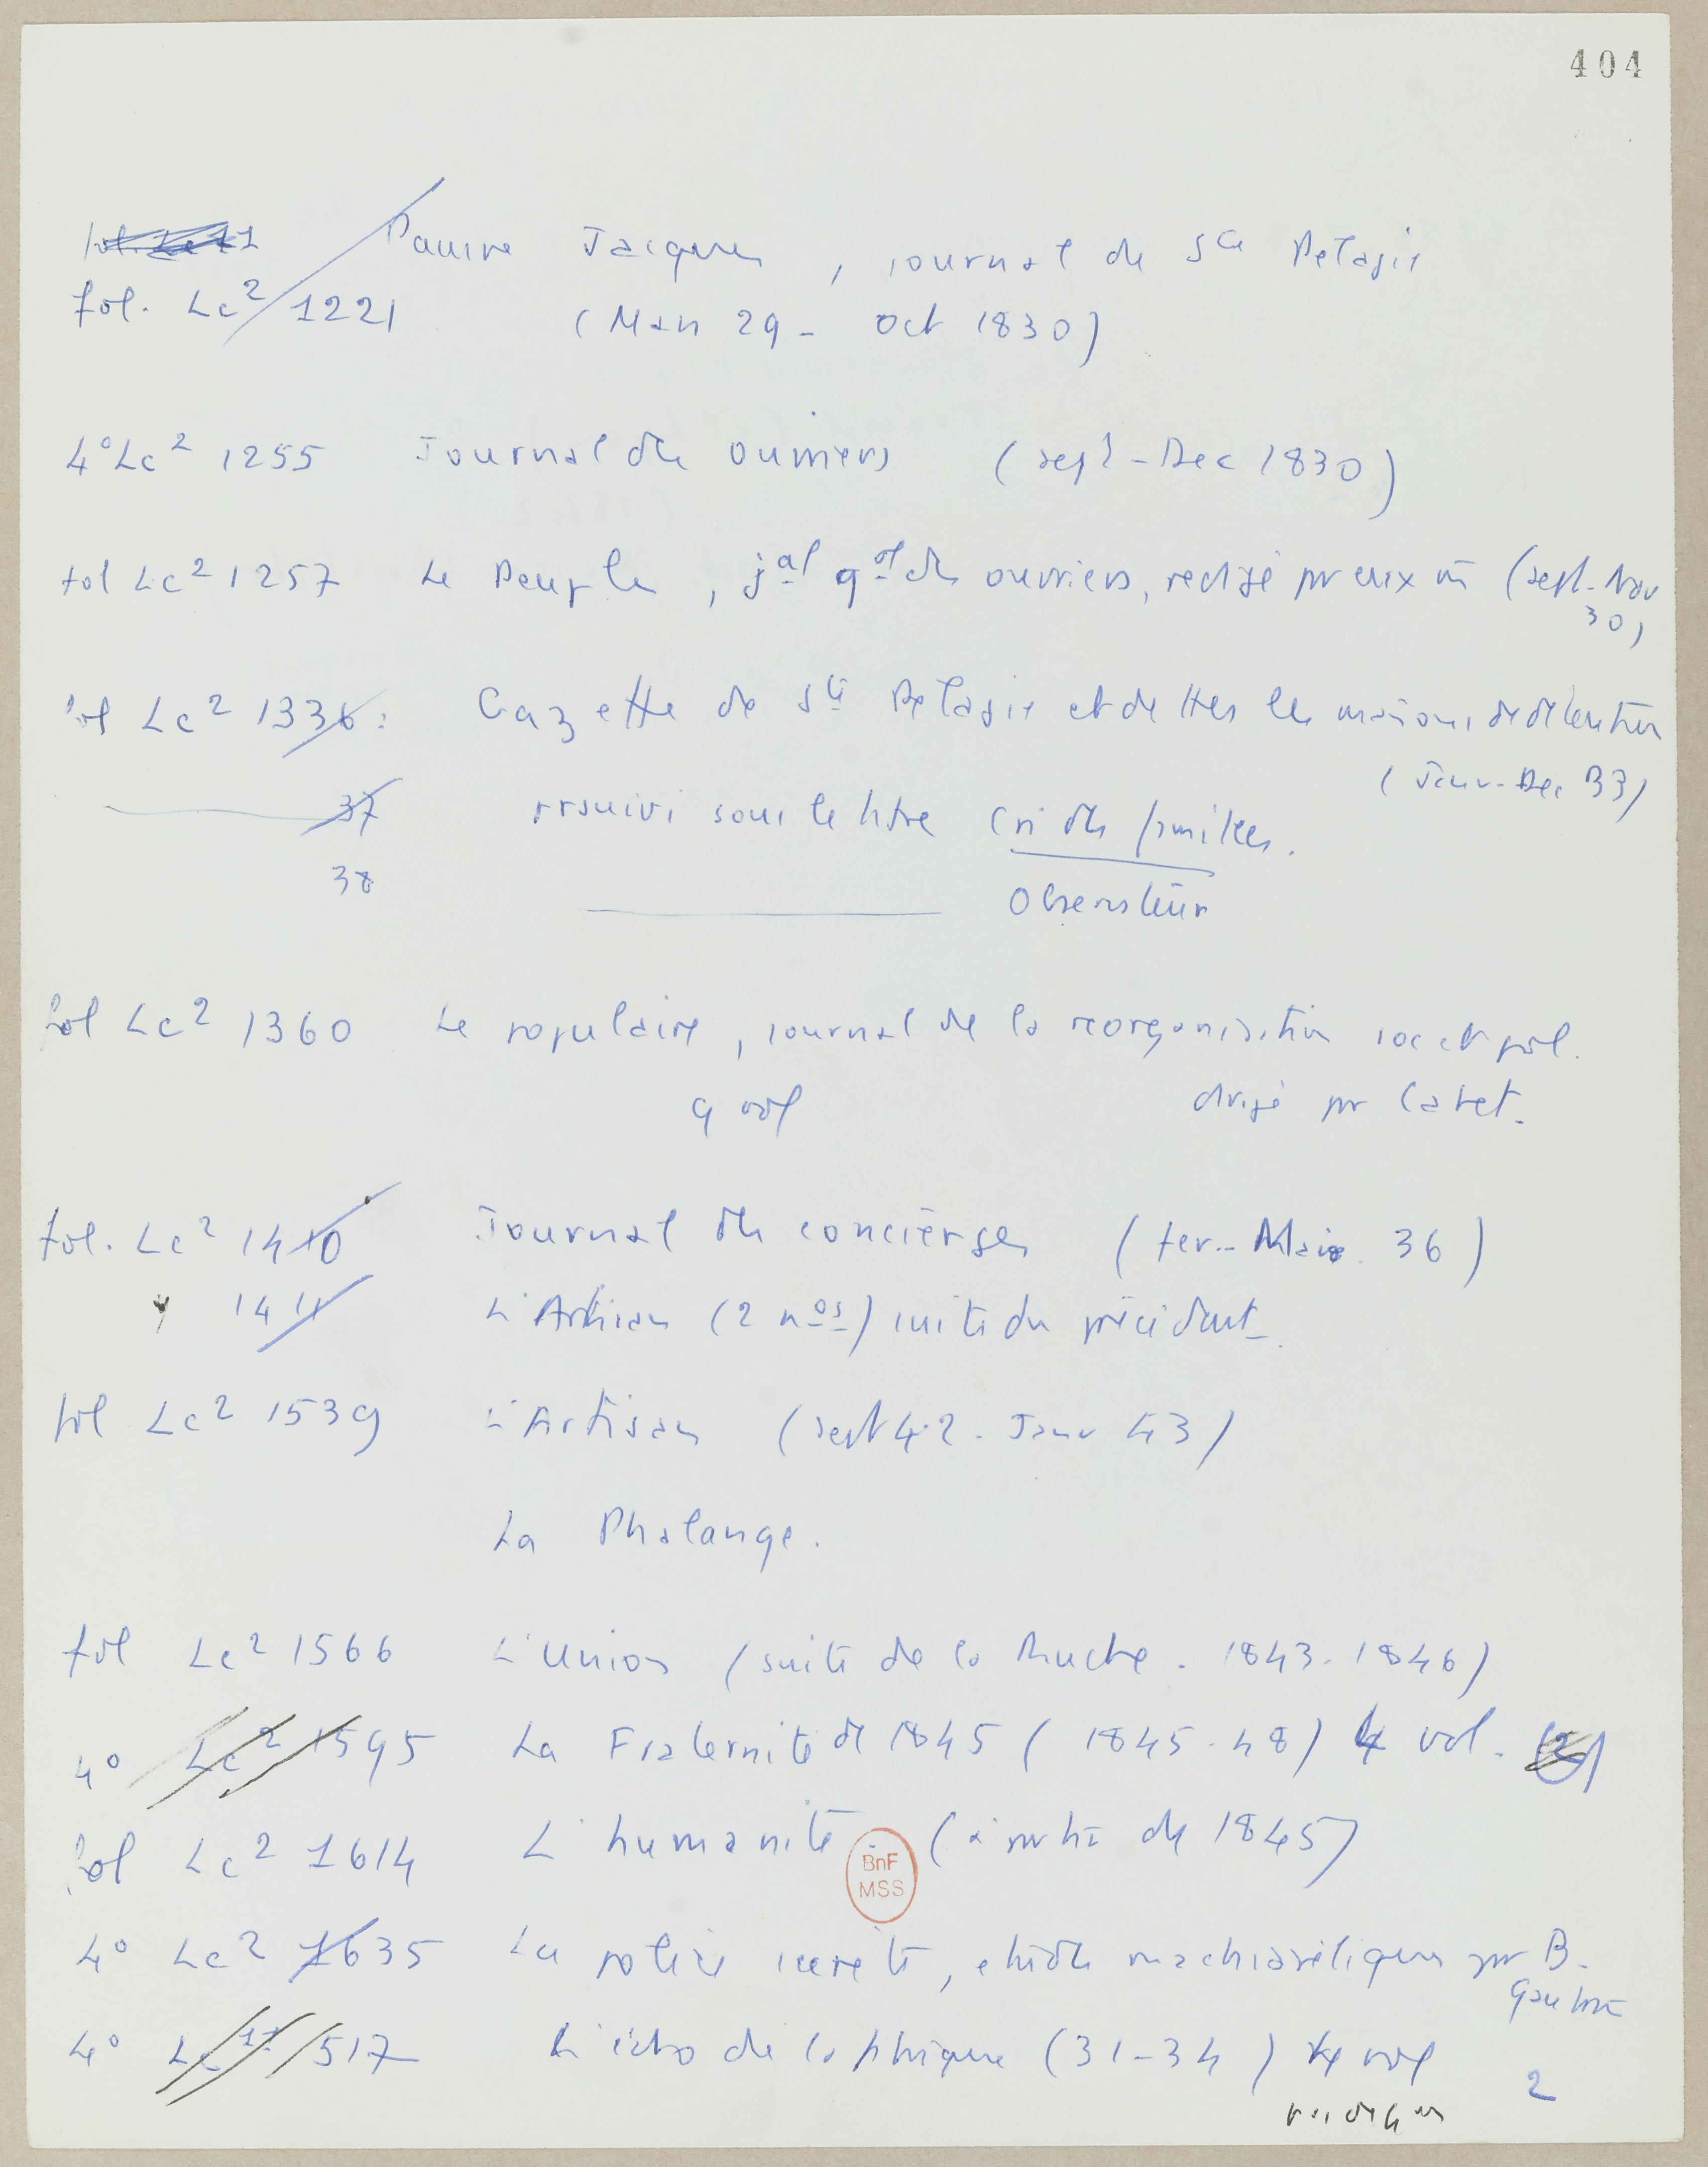 404
Pauvre Jacques, journal de Ste Pelagie
fol. Lc2 1221 (Mars 29 - oct 1830)
4° Lc2 1255 Journal des ouvriers (sept - Dec 1830)
fol Lc2 1257 Le Peuple, jal gal des ouvriers, redigé par eux m (sept. Nov
30)
fol Lc2 1336: Gazette de Ste Pelagie et de ttes les maisons de detention
(Janv - Dec 33)
37 poursuivi sous le titre Cri des familles.
38 Observateur
fol Lc2 1360 Le populaire, journal de la reorganisation soc et pol.
9 vol dirigé par Cabet.
fol. Lc2 1410 Journal des concierges (fev - Mai 36)
1411 L'Artisan (2 nos) suite du précédent.
fol Lc2 1539 L'Artisan (sept 42. Janv 43)
La Phalange.
fol Lc2 1566 L'Union (suite de la Ruche. 1843. 1846)
4° Lc2 1595 La Fraternité de 1845 (1845. 48) 4 vol.
fol Lc2 1614 L'humanité (à partir de 1845)
BnF
MSS
4° Lc2 1635 La police secrète, etudes machiavéliques par B.
4° Lc11 517 L'écho de la fabrique (31-34) 4 vol
2